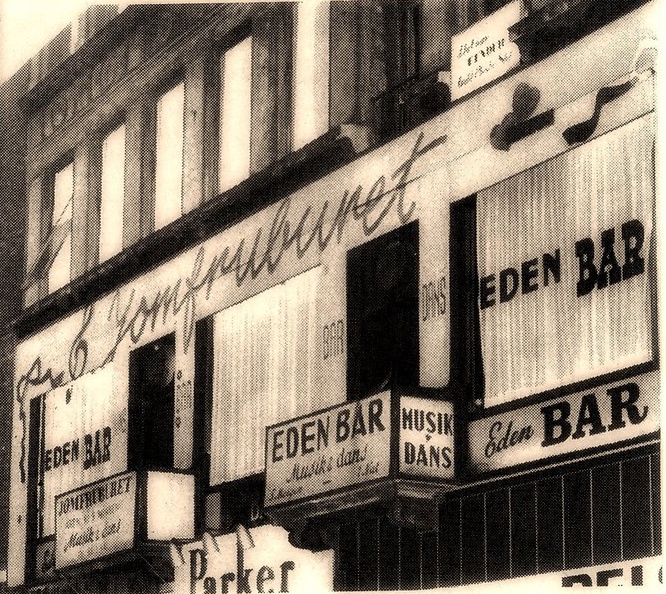 Jomfruburet
EDEN BAR
BAR
DANS
EDEN BAR
EDEN BAR
Musik & dans
MUSIK
DANS
Eden BAR
JOMFRUBURET
Musik & dans
Parker